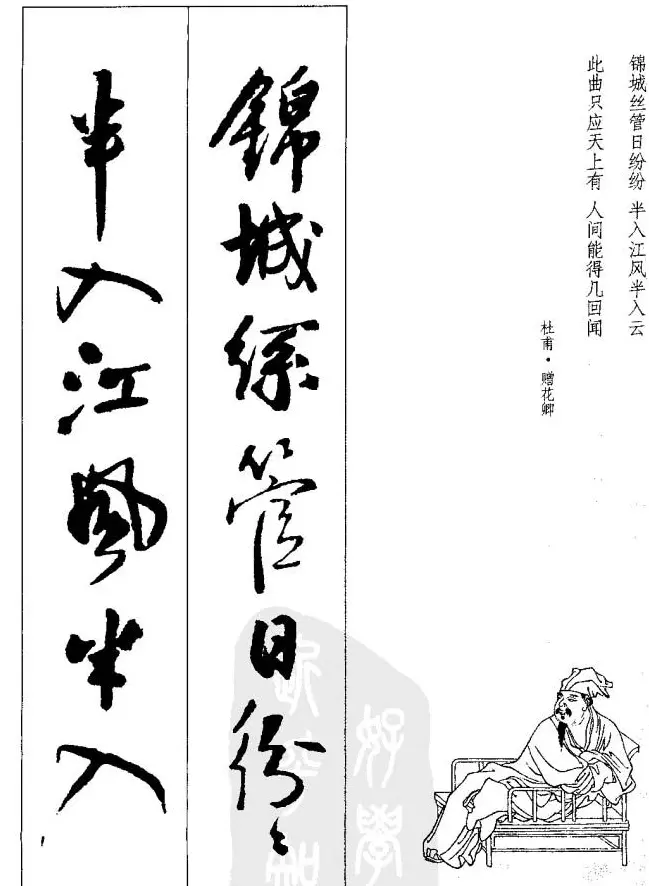 锦城丝管日纷纷 半入江风半入云
此曲只应天上有 人间能得几回闻
杜甫·赠花卿
錦城絲管日紛〻
半入江風半入
好學